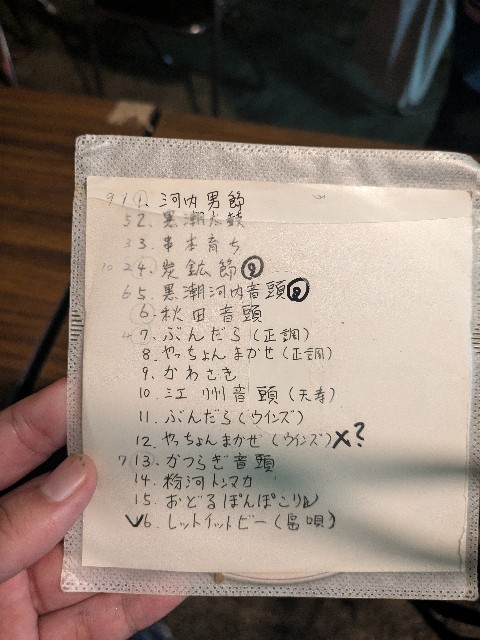 9 1 1. 河内男節
5 2. 黒潮太鼓
3 3. 串本育ち
10 2 4. 炭鉱節②
6 5. 黒潮河内音頭②
6. 秋田音頭
4 7. ぶんだら(正調)
8. やっちょんまかせ(正調)
9. かわさき
10. 江州音頭(天寿)
11. ぶんだら(ウインズ)
12. やっちょんまかせ(ウインズ)X?
7 13. かつらぎ音頭
14. 粉河トンマカ
15. おどるぽんぽこりん
✓16. レットイットビー(島唄)